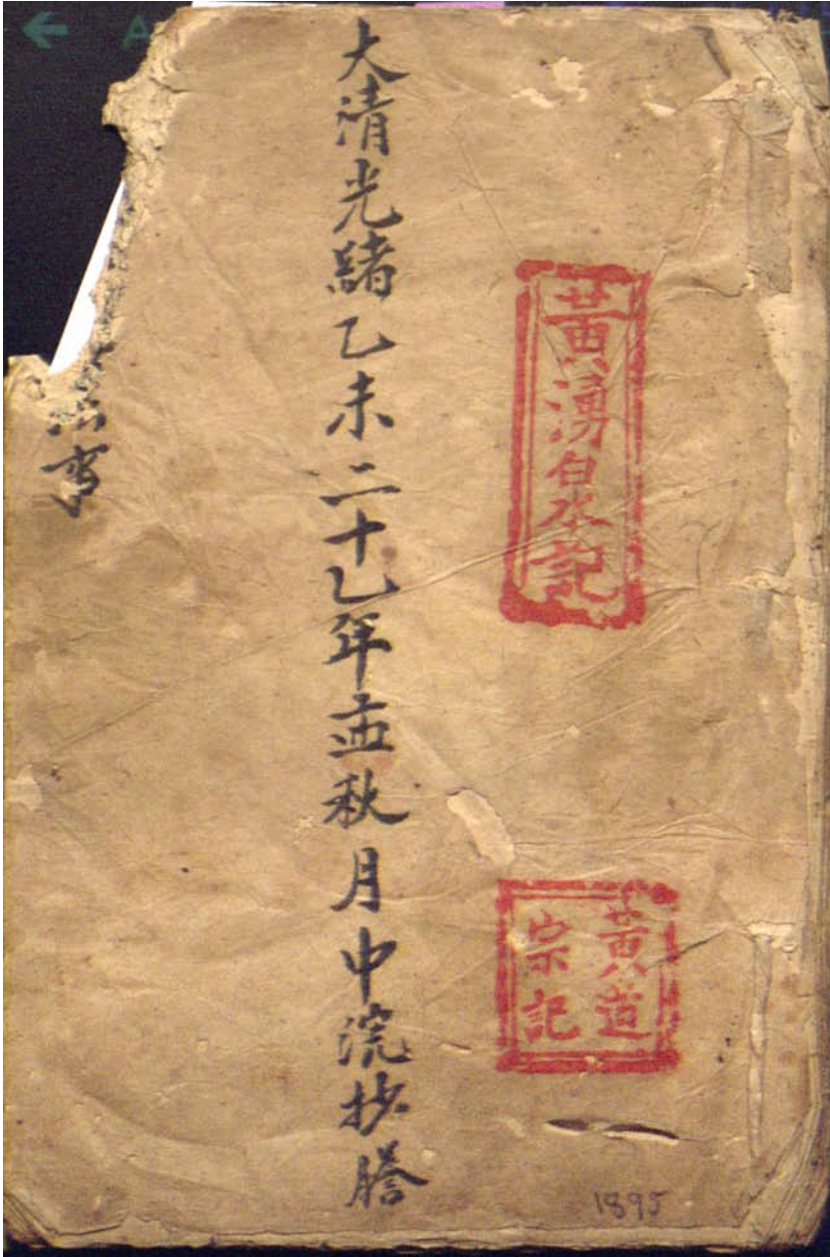 黃湧白水記
黃道
宗記
大清光緒乙未二十乙年孟秋月中浣抄謄
1895